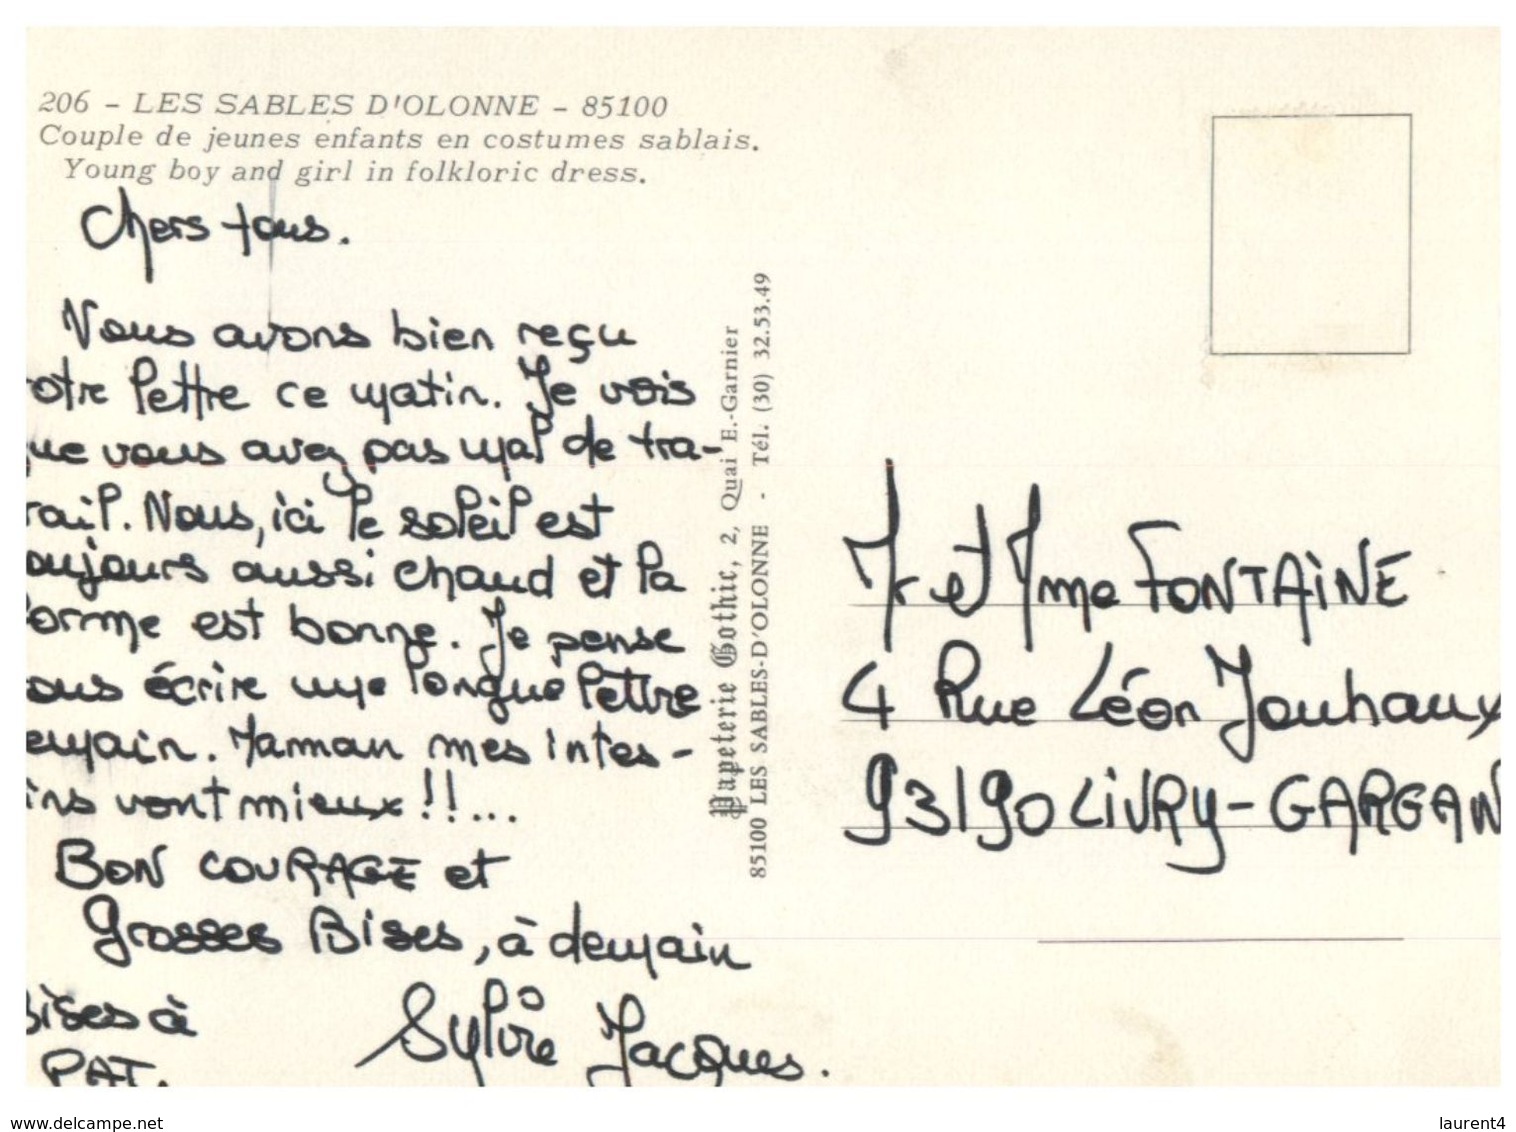 206 - LES SABLES D'OLONNE - 85100
Couple de jeunes enfants en costumes sablais.
Young boy and girl in folkloric dress.
Chers tous.
Nous avons bien reçu
otre lettre ce matin. Je vois
que vous avez pas mal de tra-
vail. Nous, ici le soleil est
oujours aussi chaud et la
forme est bonne. Je pense
ous écrire une longue lettre
emain. Maman mes intes-
ins vont mieux!!...
BON COURAGE et
Grosses Bises, à demain
Bises à
PAT.
Sylvie Jacques.
Papeterie Gothic, 2, Quai E.-Garnier
85100 LES SABLES-D'OLONNE - Tél. (30) 32.53.49
Mr et Mme FONTAINE
4 Rue Léon Jouhaux
93190 LIVRY-GARGAN
www.delcampe.net
laurent4